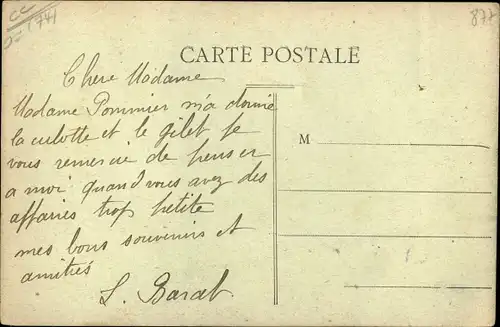 CC
1741
877
CARTE POSTALE
Chere Madame
Madame Pommier m'a donné
la culotte et le gilet je
vous remercie de penser
a moi quand vous avez des
affaries trop petite
mes bons souvenirs et
amitiés
L. Barat
M